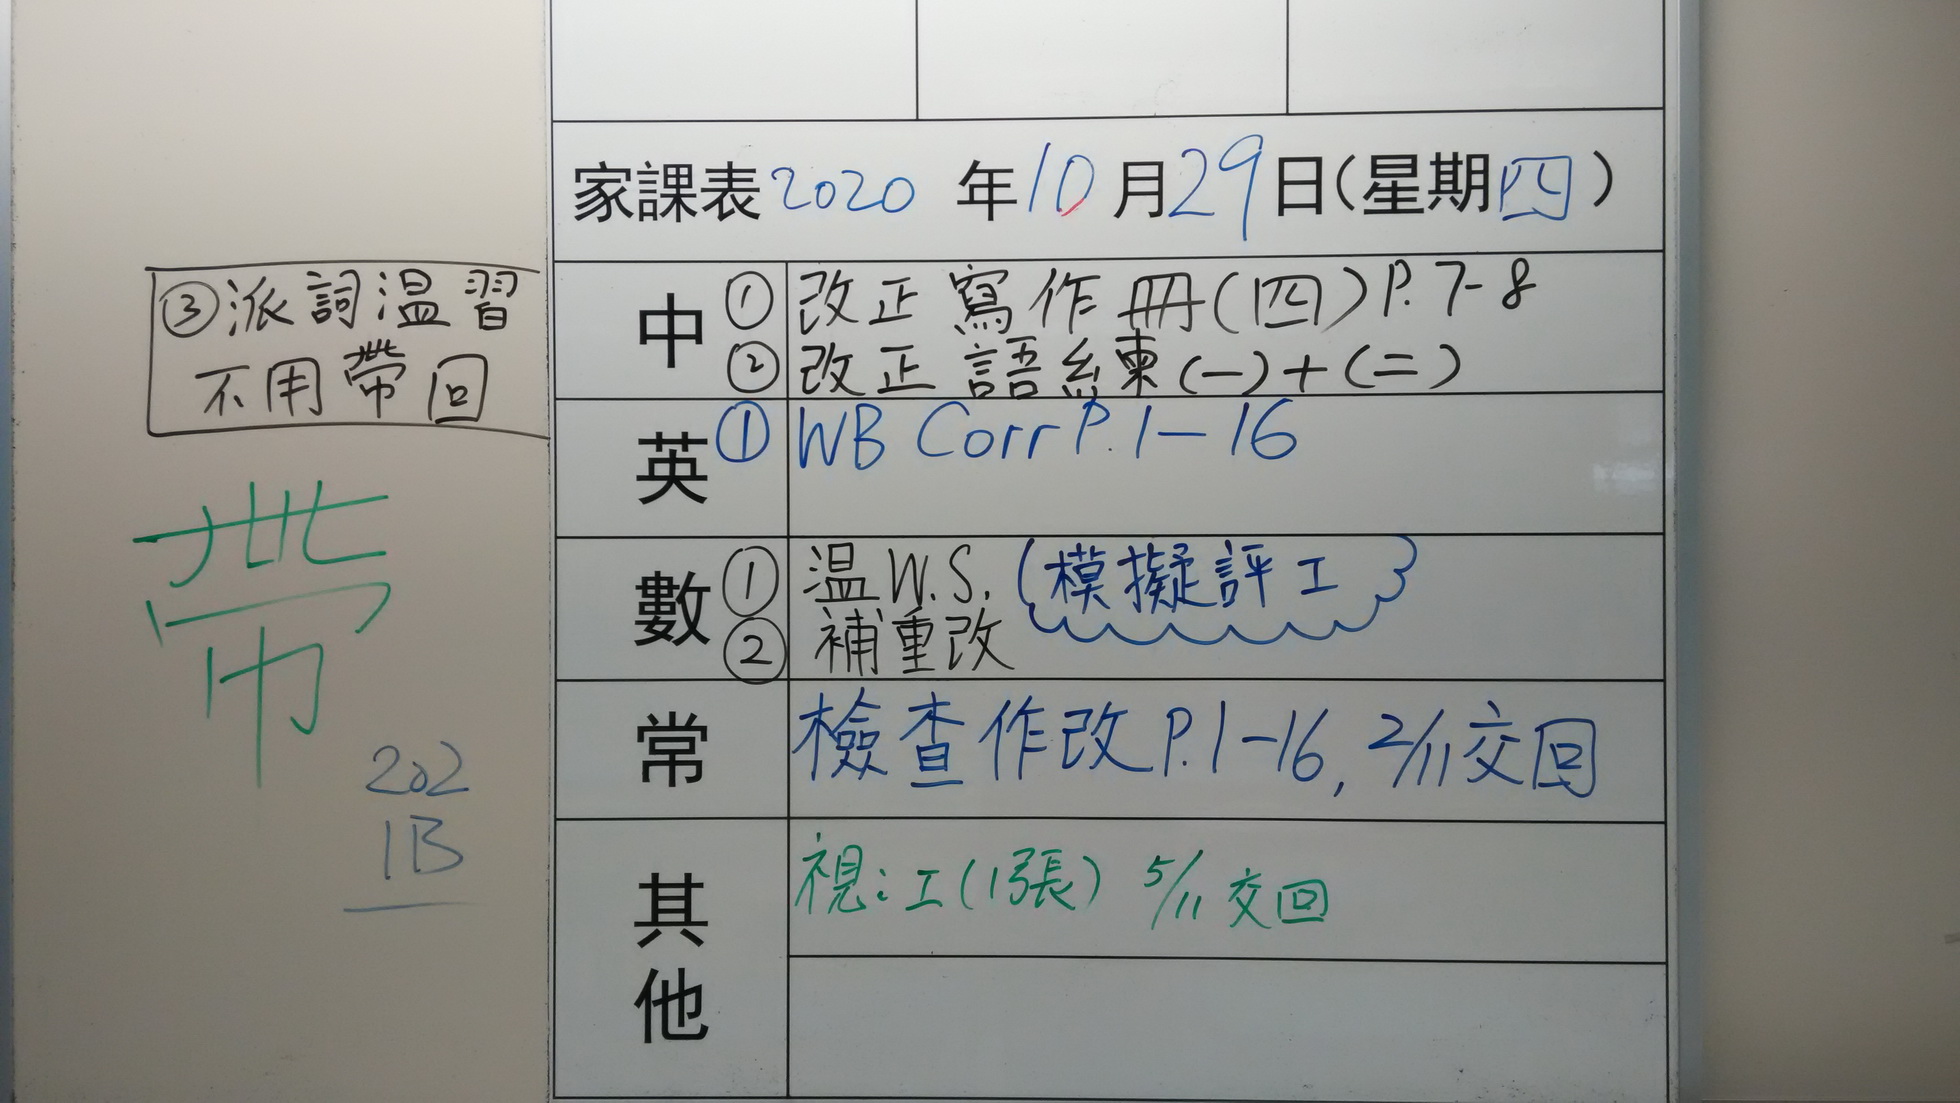 家課表2020年10月29日(星期四)
中
①改正寫作冊(四)P.7-8
②改正語練(一)+(二)
③派詞温習
不用帶回
英
①WB Corr P.1-16
數
①温W.S.(模擬評工)
②補重改
常
檢查作改P.1-16, 2/11交回
其他
視:工(1張) 5/11交回
帶
202
1B